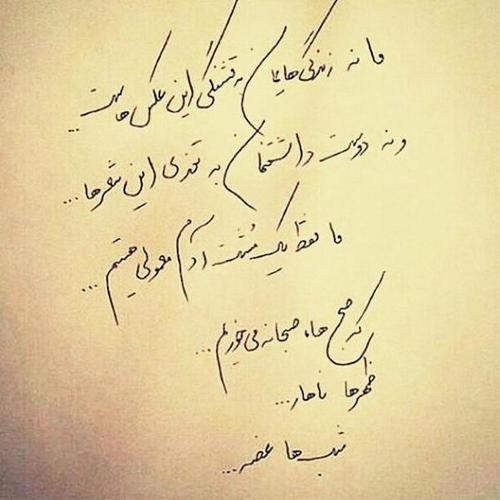 ما نه زندگی‌هایمان به قشنگی این عکس هاست...
و نه دوست داشتنمان به تندی این شعرها...
ما فقط یک مُشت آدم معمولی هستیم...
که صبح ها، صبحانه می‌خوریم...
ظهرها ناهار...
شب‌ها غصه...